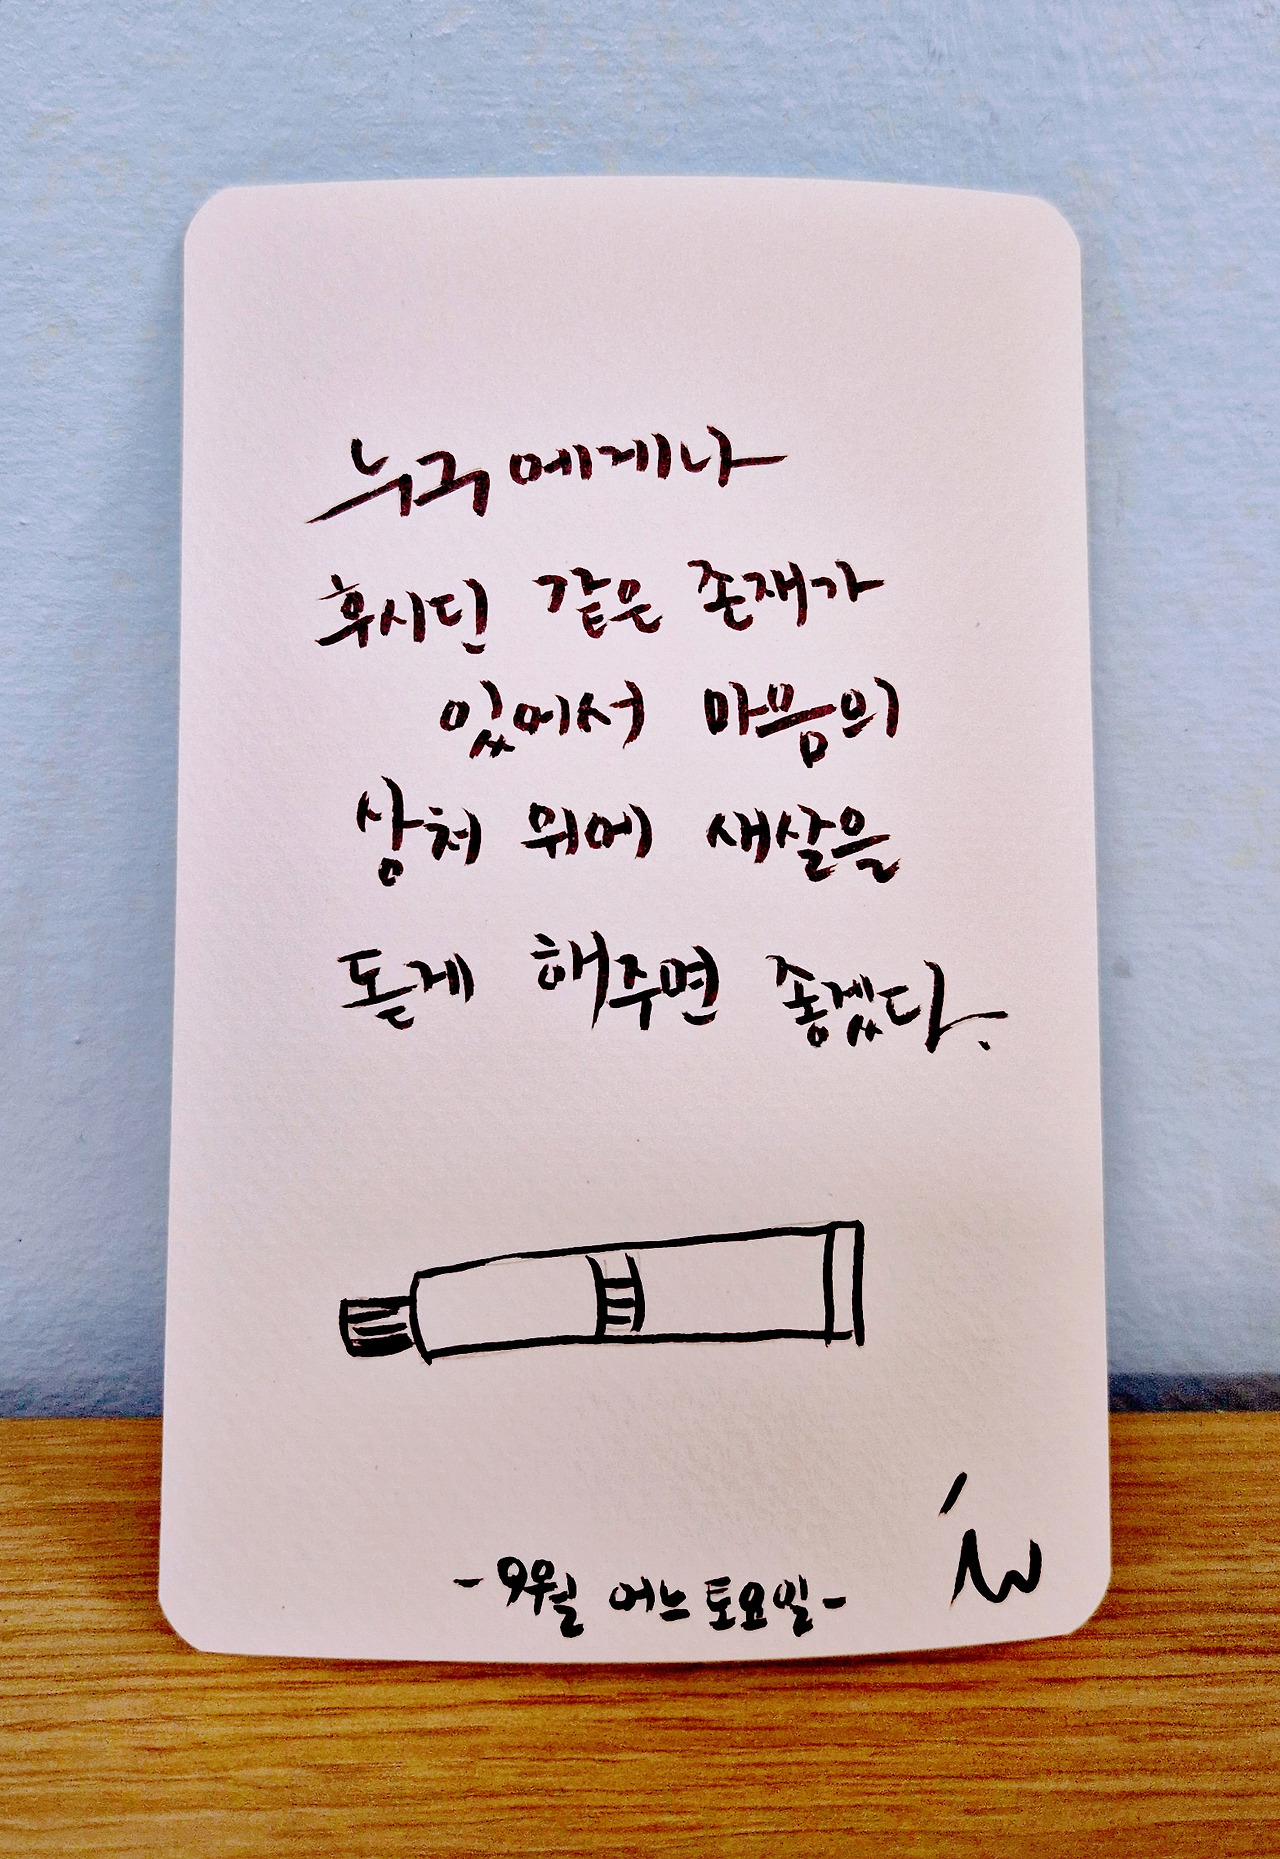 누구에게나
후시딘 같은 존재가
있어서 마음의
상처 위에 새살을
돋게 해주면 좋겠다.
-9월 어느 토요일-